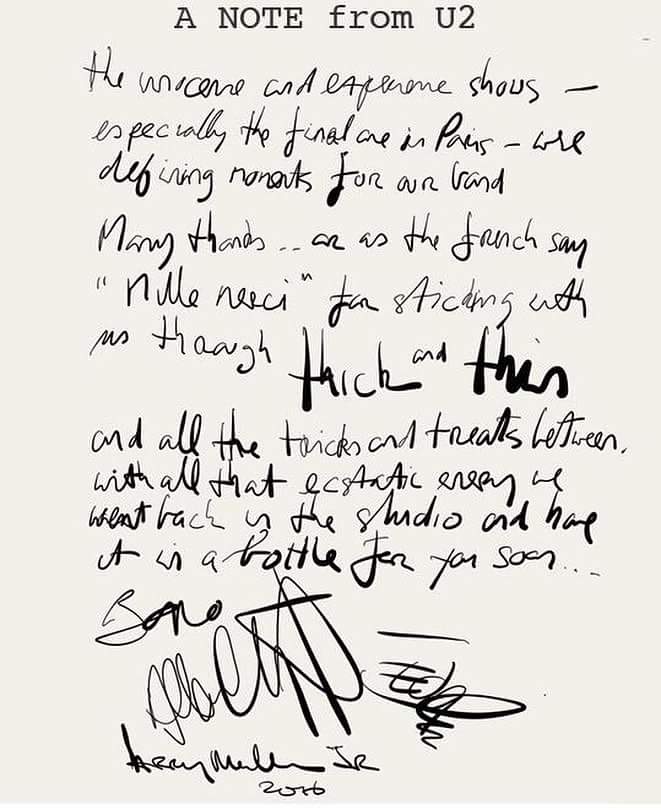 A NOTE from U2
the innocence and experience shows —
especially the final one in Paris – were
defining moments for our band
Many thanks .. or as the french say
"Mille merci" for sticking with
us through thick and thin
and all the tricks and treats between.
with all that ecstatic energy we
went back in the studio and have
it in a bottle for you soon...
Bono
Adam
Edge
Larry Mullen JR
2016